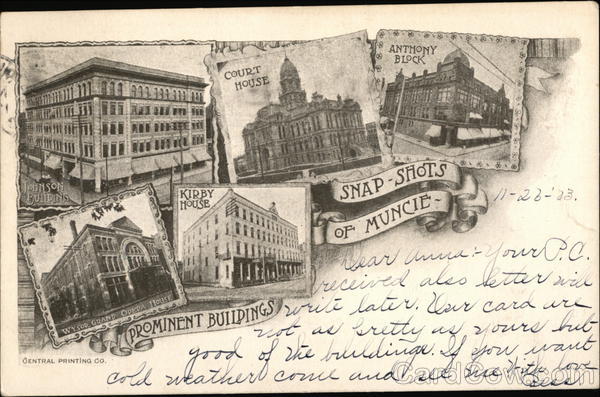 COURT
HOUSE
ANTHONY
BLOCK
JOHNSON
BUILDING
KIRBY
HOUSE
SNAP-SHOTS
OF MUNCIE-
WYSOR GRAND OPERA HOUSE
PROMINENT BUILDINGS
CENTRAL PRINTING CO.
11-23-'03.
Dear Anna:- Your P.C.
received also letter will
write later. Our card are
not as pretty as yours but
good of the buildings. If you want
cold weather come and see me. With love
Bess
CardCow.com